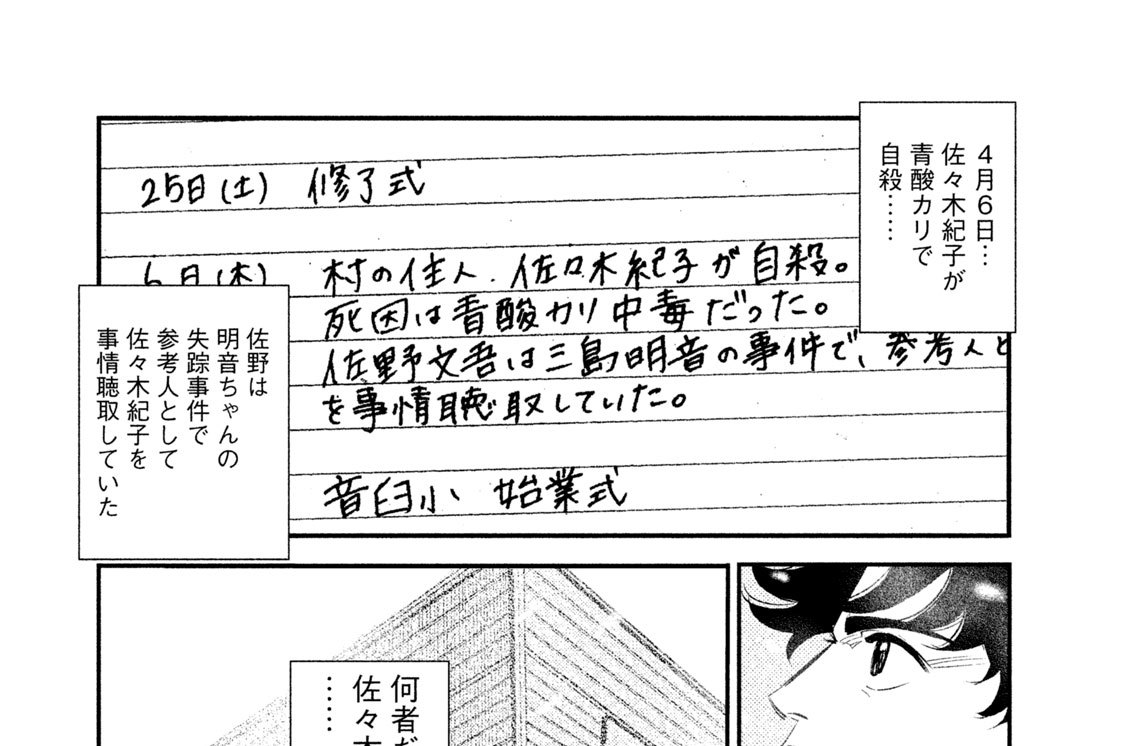 4月6日…
佐々木紀子が
青酸カリで
自殺……
25日(土) 修了式
6日(木) 村の住人、佐々木紀子が自殺。
死因は青酸カリ中毒だった。
佐野文吾は三島明音の事件で、参考人と
を事情聴取していた。
音臼小 始業式
佐野は
明音ちゃんの
失踪事件で
参考人として
佐々木紀子を
事情聴取していた
何者だ
佐々木
……